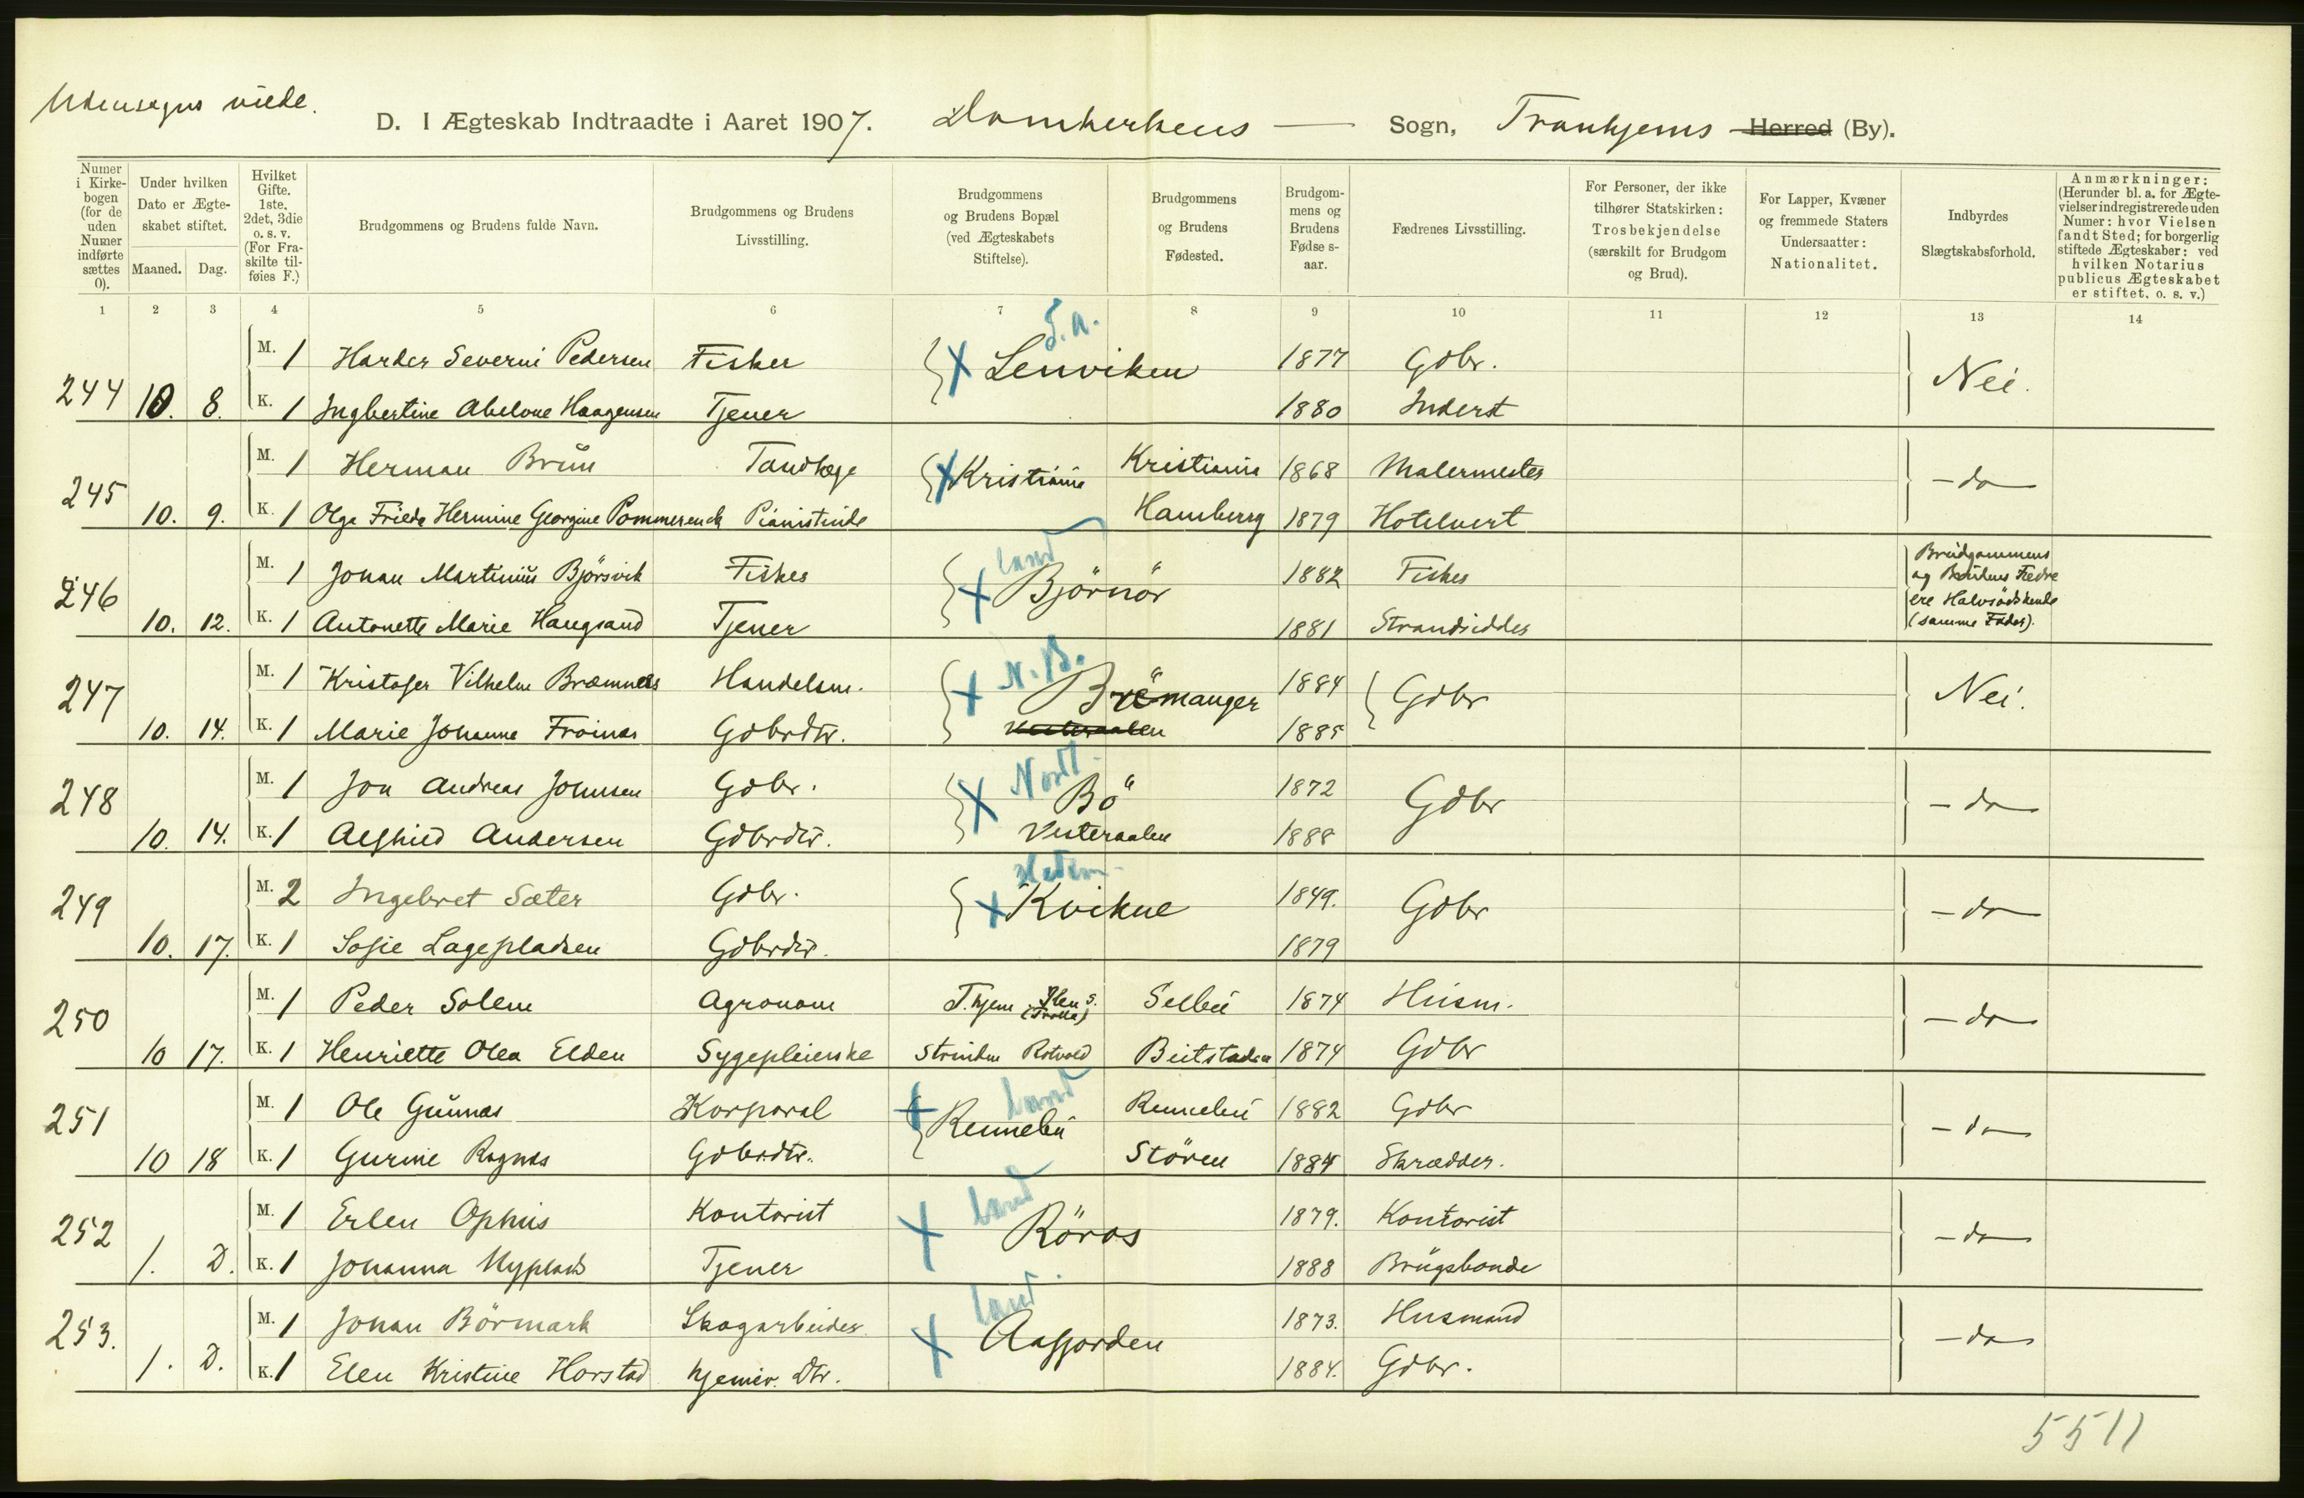 Udensogns viede.
D. I Ægteskab Indtraadte i Aaret 1907. Domkirkens — Sogn, Trondhjems Herred (By).
Numer i Kirkebogen (for de uden Numer indførte sættes 0).
Under hvilken Dato er Ægteskabet stiftet.
Maaned. Dag.
Hvilket Gifte. 1ste, 2det, 3die o. s. v. (For Fraskilte tilføies F.)
Brudgommens og Brudens fulde Navn.
Brudgommens og Brudens Livsstilling.
Brudgommens og Brudens Bopæl (ved Ægteskabets Stiftelse).
Brudgommens og Brudens Fødested.
Brudgommens og Brudens Fødselsaar.
Fædrenes Livsstilling.
For Personer, der ikke tilhører Statskirken: Trosbekjendelse (særskilt for Brudgom og Brud).
For Lapper, Kvæner og fremmede Staters Undersaatter: Nationalitet.
Indbyrdes Slægtskabsforhold.
Anmærkninger: (Herunder bl. a. for Ægtevielser indregistrerede uden Numer: hvor Vielsen fandt Sted; for borgerlig stiftede Ægteskaber: ved hvilken Notarius publicus Ægteskabet er stiftet, o. s. v.)
1 2 3 4 5 6 7 8 9 10 11 12 13 14
T. A.
M. 1 Harder Severin Pedersen Fisker X Lenviken 1877 Gdbr. Nei.
244 10. 8. K. 1 Ingbertine Abelone Haagensen Tjener 1880 Inderst
M. 1 Herman Bruun Tandlæge X Kristiania Kristiania 1868 Malermester
245 10. 9. K. 1 Olga Frieda Hermine Georgine Pommerenck Pianistinde Hamburg 1879 Hotelvert - do
land
M. 1 Johan Martinius Björsvik Fisker X Björnör 1882 Fisker Brudgommens og Brudens Fedre ere Halvsödskende (samme Fader).
246 10. 12. K. 1 Antonette Marie Haugsand Tjener 1881 Strandsidder
N. B.
M. 1 Kristofer Vilhelm Bræmnes Handelsm. X Bremanger 1884 Gdbr Nei.
247 10. 14. K. 1 Marie Johanne Froinas Gdbrdtr. Vesteraalen 1885
Nordl.
M. 1 Jon Andreas Johnsen Gdbr. X Bö 1872 Gdbr - do
248 10. 14. K. 1 Alfhild Andersen Gdbrdtr. Vesteraalen 1888
Hedem.
M. 2 Ingebret Sæter Gdbr. X Kvikne 1849. Gdbr - do
249 10. 17. K. 1 Sofie Lagepladsen Gdbrdtr. 1879
M. 1 Peder Solem Agronom T.hjem Ilen S. (Trolla) Selbu 1874 Husm.
250 10 17. K. 1 Henriette Olea Elden Sygepleierske Strinden Rotvold Beitstaden 1874 Gdbr - do
land
M. 1 Ole Gunnes Korporal X Rennebu Rennebu 1882 Gdbr
251 10 18 K. 1 Gurine Ragnes Gdbrdtr. Stören 1884 Skrædder. - do
land
M. 1 Erlen Ophus Kontorist X Röros 1879. Kontorist
252 1. D. K. 1 Johanna Nyplads Tjener 1888 Brugsbonde - do
land
M. 1 Johan Börmark Skogarbeider X Aafjorden 1873. Husmand
253. 1. D. K. 1 Elen Kristine Horstad hjemev. Dtr. 1884. Gdbr. - do
5511